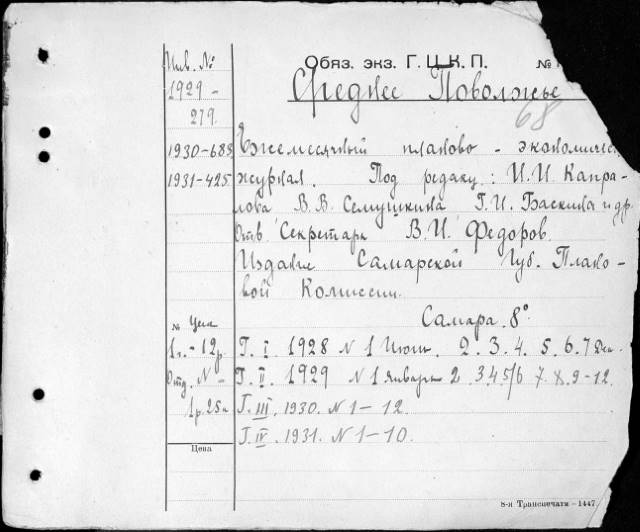 Инв. №
1929 -
279.
1930-688
1931-425
№ Цена
1 г. - 12 р.
Отд. № -
1 р. 25 к
Цена
Обяз. экз. Г. Ц. К. П. №
Среднее Поволжье
68
Ежемесячный планово - экономичес
журнал. Под редакц: И. И. Капра-
лова В. В. Семушкина Г. И. Баскина и др.
Отв. Секретарь В. И. Федоров.
Издание Самарской Губ. Плано-
вой Комиссии.
Самара. 8°.
Г. I. 1928 № 1 Июнь. 2. 3. 4. 5. 6. 7 Дек.
Г. II. 1929 № 1 Январь 2 3 4 5/6 7. 8. 9-12.
Г. III. 1930. № 1-12.
Г. IV. 1931. № 1-10.
8-я Транспечати - 1447.